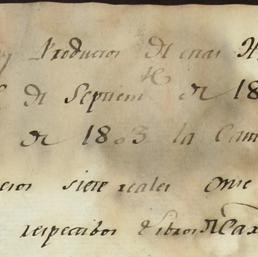 y Productos de estas H
de Septiem.re de 18
de 1803 la Cant
cios siete reales once
respectibos Libros de Cax